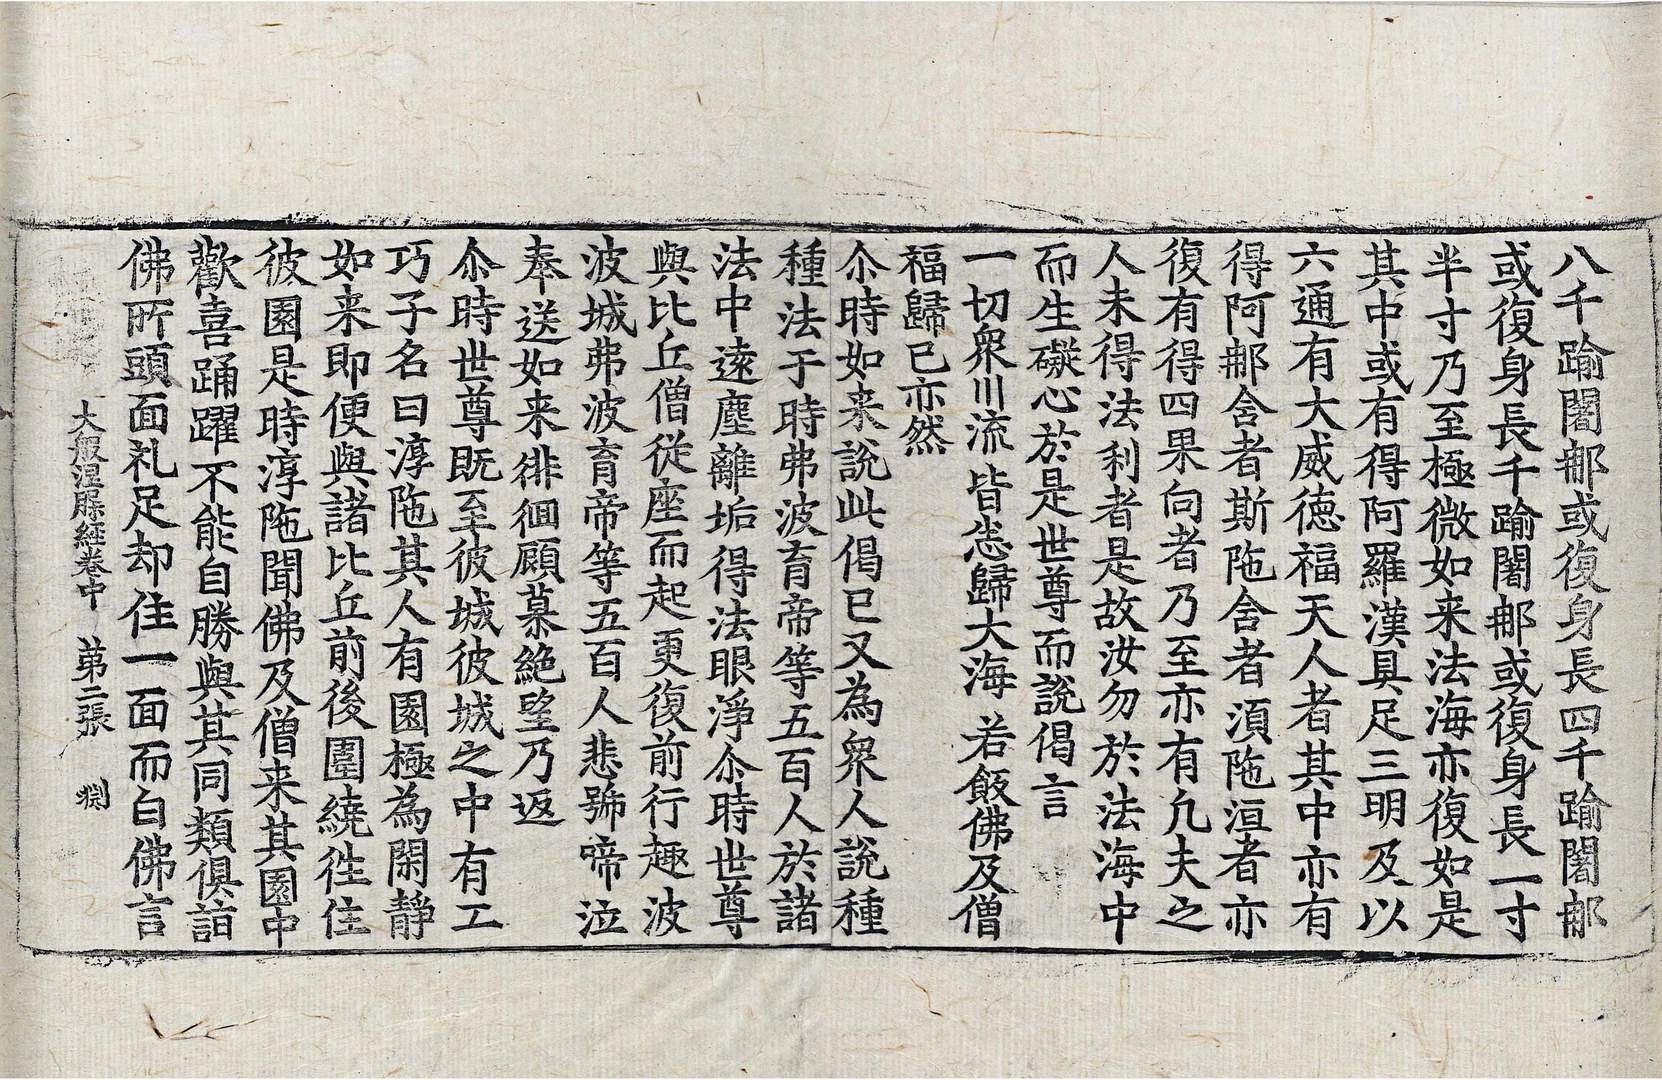 八千踰闍那或復身長四千踰闍那
或復身長千踰闍那或復身長一寸
半寸乃至極微如来法海亦復如是
其中或有得阿羅漢具足三明及以
六通有大威德福天人者其中亦有
得阿那含者斯陁含者湏陁洹者亦
復有得四果向者乃至亦有凢夫之
人未得法利者是故汝勿於法海中
而生礙心於是世尊而說偈言
一切衆川流 皆悉歸大海 若飯佛及僧
福歸已亦然
尒時如来說此偈已又為衆人說種
種法于時弗波育帝等五百人於諸
法中遠塵離垢得法眼淨尒時世尊
與比丘僧從座而起更復前行趣波
波城弗波育帝等五百人悲號啼泣
奉送如来徘徊顧慕絕望乃返
尒時世尊既至彼城彼城之中有工
巧子名曰淳陁其人有園極為閑靜
如来即便與諸比丘前後圍繞往住
彼園是時淳陁聞佛及僧来其園中
歡喜踊躍不能自勝與其同類俱詣
佛所頭面礼足却住一面而白佛言
大般涅槃經卷中 第二張 渊